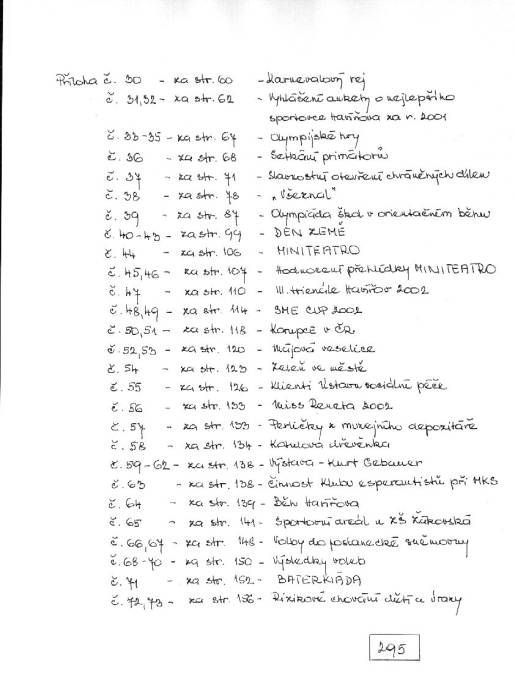 Příloha č. 30 - za str. 60 - Karnevalový rej
č. 31,32 - za str. 62 - Vyhlášení ankety o nejlepšího
sportovce Havířova za r. 2001
č. 33-35 - za str. 67 - Olympijské hry
č. 36 - za str. 68 - Setkání primátorů
č. 37 - za str. 71 - Slavnostní otevření chráněných dílen
č. 38 - za str. 78 - "Všeznal"
č. 39 - za str. 87 - Olympiáda škol v orientačním běhu
č. 40-43 - za str. 99 - DEN ZEMĚ
č. 44 - za str. 106 - MINITEATRO
č. 45,46 - za str. 107 - Hodnocení přehlídky MINITEATRO
č. 47 - za str. 110 - III. trienále Havířov 2002
č. 48,49 - za str. 114 - SME CUP 2002
č. 50,51 - za str. 118 - Korupce v ČR
č. 52,53 - za str. 120 - Májová veselice
č. 54 - za str. 123 - Zeleň ve městě
č. 55 - za str. 126 - Klienti Ústavu sociální péče
č. 56 - za str. 133 - Miss Reneta 2002
č. 57 - za str. 133 - Perličky z muzejního depozitáře
č. 58 - za str. 134 - Kotulova dřevěnka
č. 59-62 - za str. 138 - Výstava - Kurt Gebauer
č. 63 - za str. 138 - Činnost Klubu esperantistů při MKS
č. 64 - za str. 139 - Běh Havířova
č. 65 - za str. 141 - Sportovní areál u ZŠ Žákovská
č. 66,67 - za str. 148 - Volby do poslanecké sněmovny
č. 68-70 - za str. 150 - Výsledky voleb
č. 71 - za str. 152 - BATERKIÁDA
č. 72,73 - za str. 156 - Rizikové chování dětí a úrazy
295